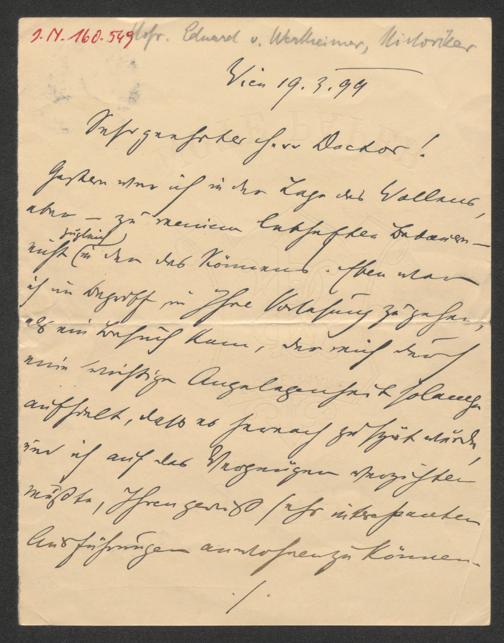 I.N. 160.549 Hofr. Eduard v. Wertheimer, Historiker
Wien 19.3.99
Sehr geehrter Herr Doctor!
Gestern war ich in der Lage des Wollens,
aber – zu meinem lebhaften Bedauern –
nicht zugleich in der des Könnens. Eben war
ich im Begriff, in Ihre Vorlesung zu gehen,
als ein Besuch kam, der mich durch
eine wichtige Angelegenheit solange
aufhielt, dass es hernach zu spät wurde,
und ich auf das Vergnügen verzichten
mußte, Ihren gewiß sehr interessanten
Ausführungen anwohnen zu können.
./.